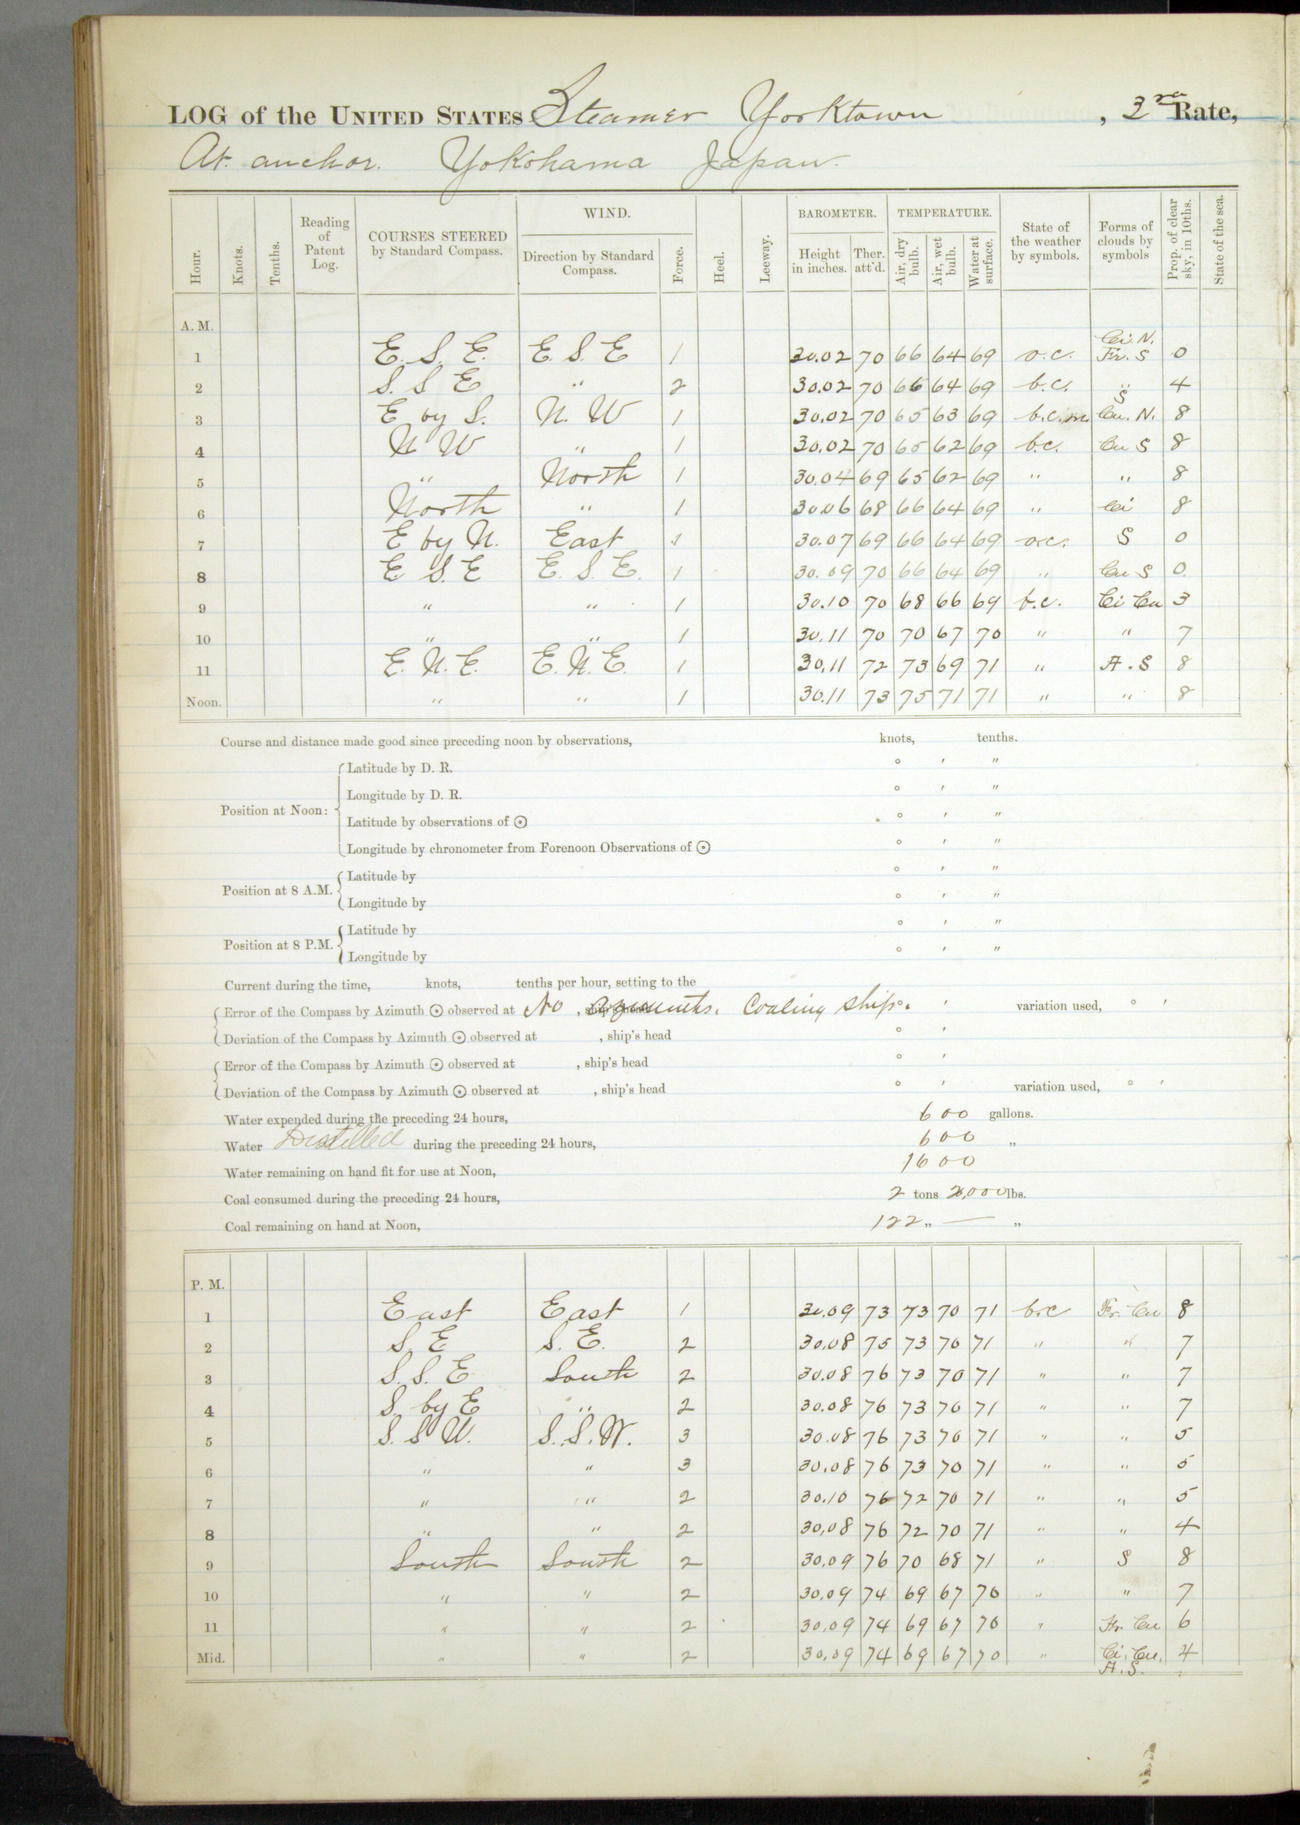 LOG of the UNITED STATES Steamer Yorktown, 3rd Rate,
At anchor. Yokohama Japan.
Hour. Knots. Tenths. Reading of Patent Log. COURSES STEERED by Standard Compass. WIND. Direction by Standard Compass. Force. Heel. Leeway. BAROMETER. Height in inches. Ther. att'd. TEMPERATURE. Air, dry bulb. Air, wet bulb. Water at surface. State of the weather by symbols. Forms of clouds by symbols Prop. of clear sky, in 10ths. State of the sea.
A. M.
1 E. S. E. E. S. E 1 30.02 70 66 64 69 o.c. Ci. N. Fr. S 0
2 S. S E " 2 30.02 70 66 64 69 b.c. " 4
3 E by S. N. W 1 30.02 70 65 63 69 b.c.m. S Cu. N. 8
4 N W " 1 30.02 70 65 62 69 b.c. Cu S 8
5 " North 1 30.04 69 65 62 69 " " 8
6 North " 1 30.06 68 66 64 69 " Ci 8
7 E by N. East 1 30.07 69 66 64 69 o.c. S 0
8 E S E E. S. E. 1 30.09 70 66 64 69 " Cu S 0.
9 " " 1 30.10 70 68 66 69 b.c. Ci Cu 3
10 " " 1 30.11 70 70 67 70 " " 7
11 E. N. E. E. N. E. 1 30.11 72 73 69 71 " A. S 8
Noon. " " 1 30.11 73 75 71 71 " " 8
Course and distance made good since preceding noon by observations, knots, tenths.
Latitude by D. R. ° ′ ″
Longitude by D. R. ° ′ ″
Position at Noon: Latitude by observations of ☉ ° ′ ″
Longitude by chronometer from Forenoon Observations of ☉ ° ′ ″
Position at 8 A.M. Latitude by ° ′ ″
Longitude by ° ′ ″
Position at 8 P.M. Latitude by ° ′ ″
Longitude by ° ′ ″
Current during the time, knots, tenths per hour, setting to the
Error of the Compass by Azimuth ☉ observed at No azimuths. Coaling ship. ° ′ variation used, ° ′
Deviation of the Compass by Azimuth ☉ observed at , ship's head ° ′
Error of the Compass by Azimuth ☉ observed at , ship's head ° ′
Deviation of the Compass by Azimuth ☉ observed at , ship's head ° ′ variation used, ° ′
Water expended during the preceding 24 hours, 600 gallons.
Water Distilled during the preceding 24 hours, 600 "
Water remaining on hand fit for use at Noon, 1600
Coal consumed during the preceding 24 hours, 2 tons 2,000 lbs.
Coal remaining on hand at Noon, 122 " — "
P. M.
1 East East 1 30.09 73 73 70 71 b.c Fr. Cu 8
2 S. E S. E. 2 30.08 75 73 70 71 " " 7
3 S. S. E South 2 30.08 76 73 70 71 " " 7
4 S. by E " 2 30.08 76 73 70 71 " " 7
5 S. S W. S. S. W. 3 30.08 76 73 70 71 " " 5
6 " " 3 30.08 76 73 70 71 " " 5
7 " " 2 30.10 76 72 70 71 " " 5
8 " " 2 30.08 76 72 70 71 " " 4
9 South South 2 30.09 76 70 68 71 " S 8
10 " " 2 30.09 74 69 67 70 " " 7
11 " " 2 30.09 74 69 67 70 " Fr. Cu 6
Mid. " " 2 30.09 74 69 67 70 " Ci. Cu. A. S. 4